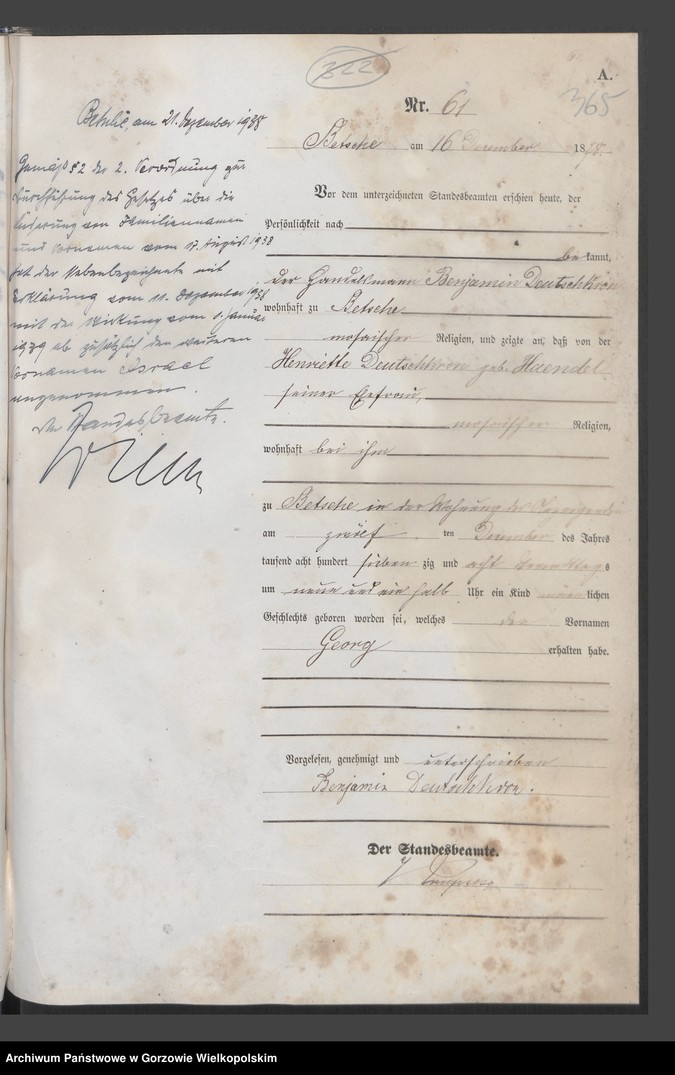 322
A.
365
Nr. 61
Betsche am 16 Dezember 1878.
Vor dem unterzeichneten Standesbeamten erschien heute, der
Persönlichkeit nach
be kannt,
der Handelsmann Benjamin Deutschkron
wohnhaft zu Betsche
mosaischer Religion, und zeigte an, daß von der
Henriette Deutschkron geb. Haendel
seiner Ehefrau,
mosaischer Religion,
wohnhaft bei ihm
zu Betsche in der Wohnung des
am zwölf ten Dezember des Jahres
tausend acht hundert sieben zig und acht Vormittags
um neun und ein halb Uhr ein Kind männlichen
Geschlechts geboren worden sei, welches den Vornamen
Georg
erhalten habe.
Vorgelesen, genehmigt und unterschrieben
Benjamin Deutschkron.
Der Standesbeamte.
Betsche, am 21. Dezember 1938
Gemäß § 2 der 2. Verordnung zur
Durchführung des Gesetzes über die
Änderung von Familiennamen
und Vornamen vom 17. August 1938
hat der Nebenbezeichnete mit
Erklärung vom 11. Dezember 1938
mit der Wirkung vom 1. Januar
1939 ab zusätzlich den weiteren
Vornamen Israel
angenommen.
Der Standesbeamte.
Archiwum Państwowe w Gorzowie Wielkopolskim